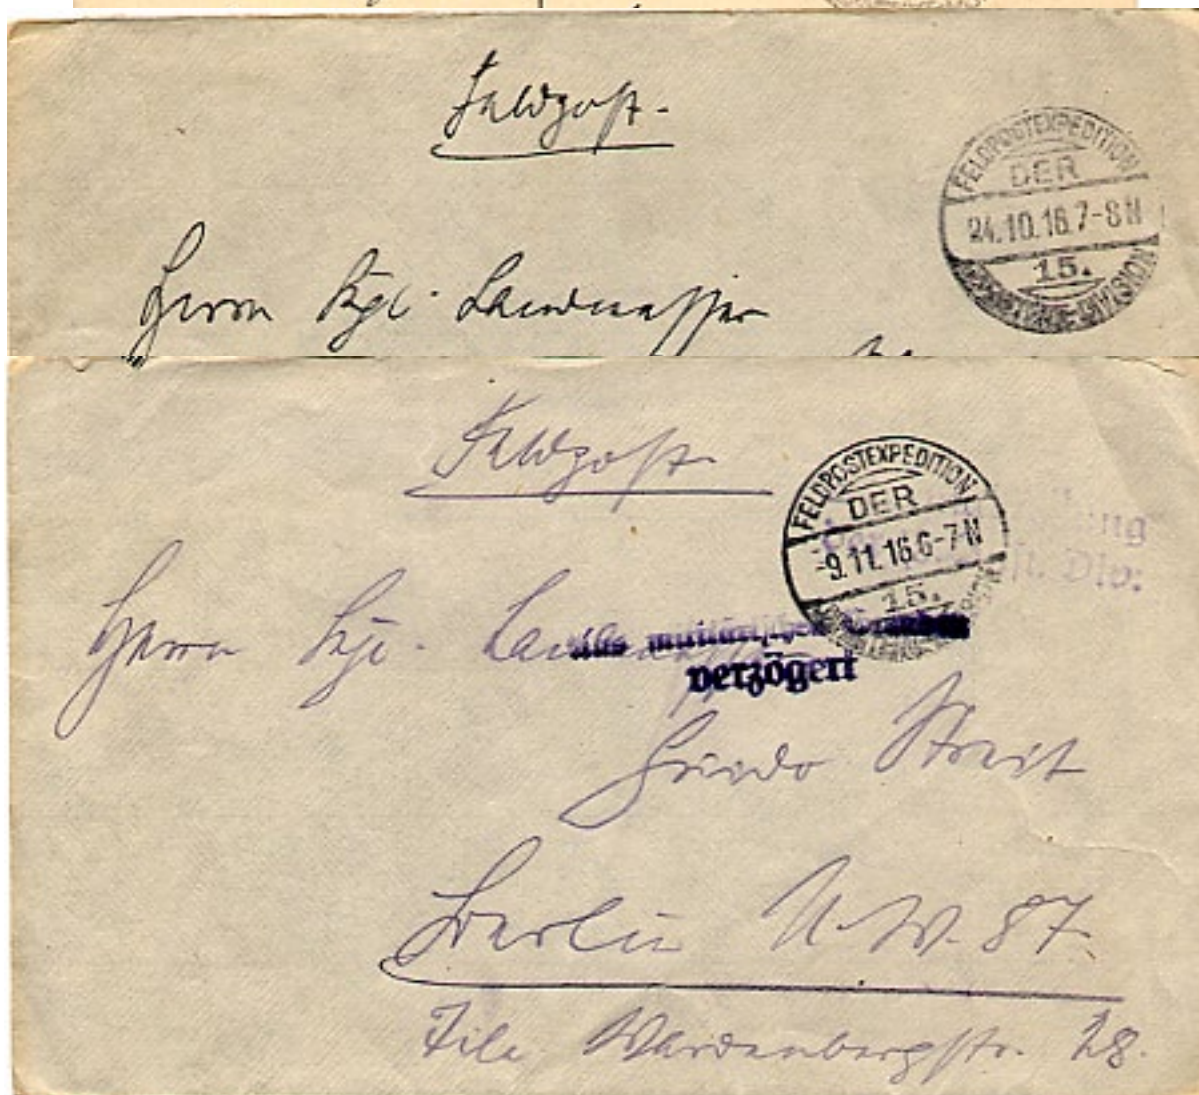 Feldpost.
FELDPOSTEXPEDITION
DER
24.10.16.7-8N
15.
DIVISION
Herrn Kgl. Landmesser
Feldpost
FELDPOSTEXPEDITION
DER
-9.11.16.6-7N
15.
ung
Div.
Herrn Kgl.
Aus militärischen Gründen
verzögert
Guido Streit
Berlin N.W. 87.
Tile Wardenbergstr. 28.